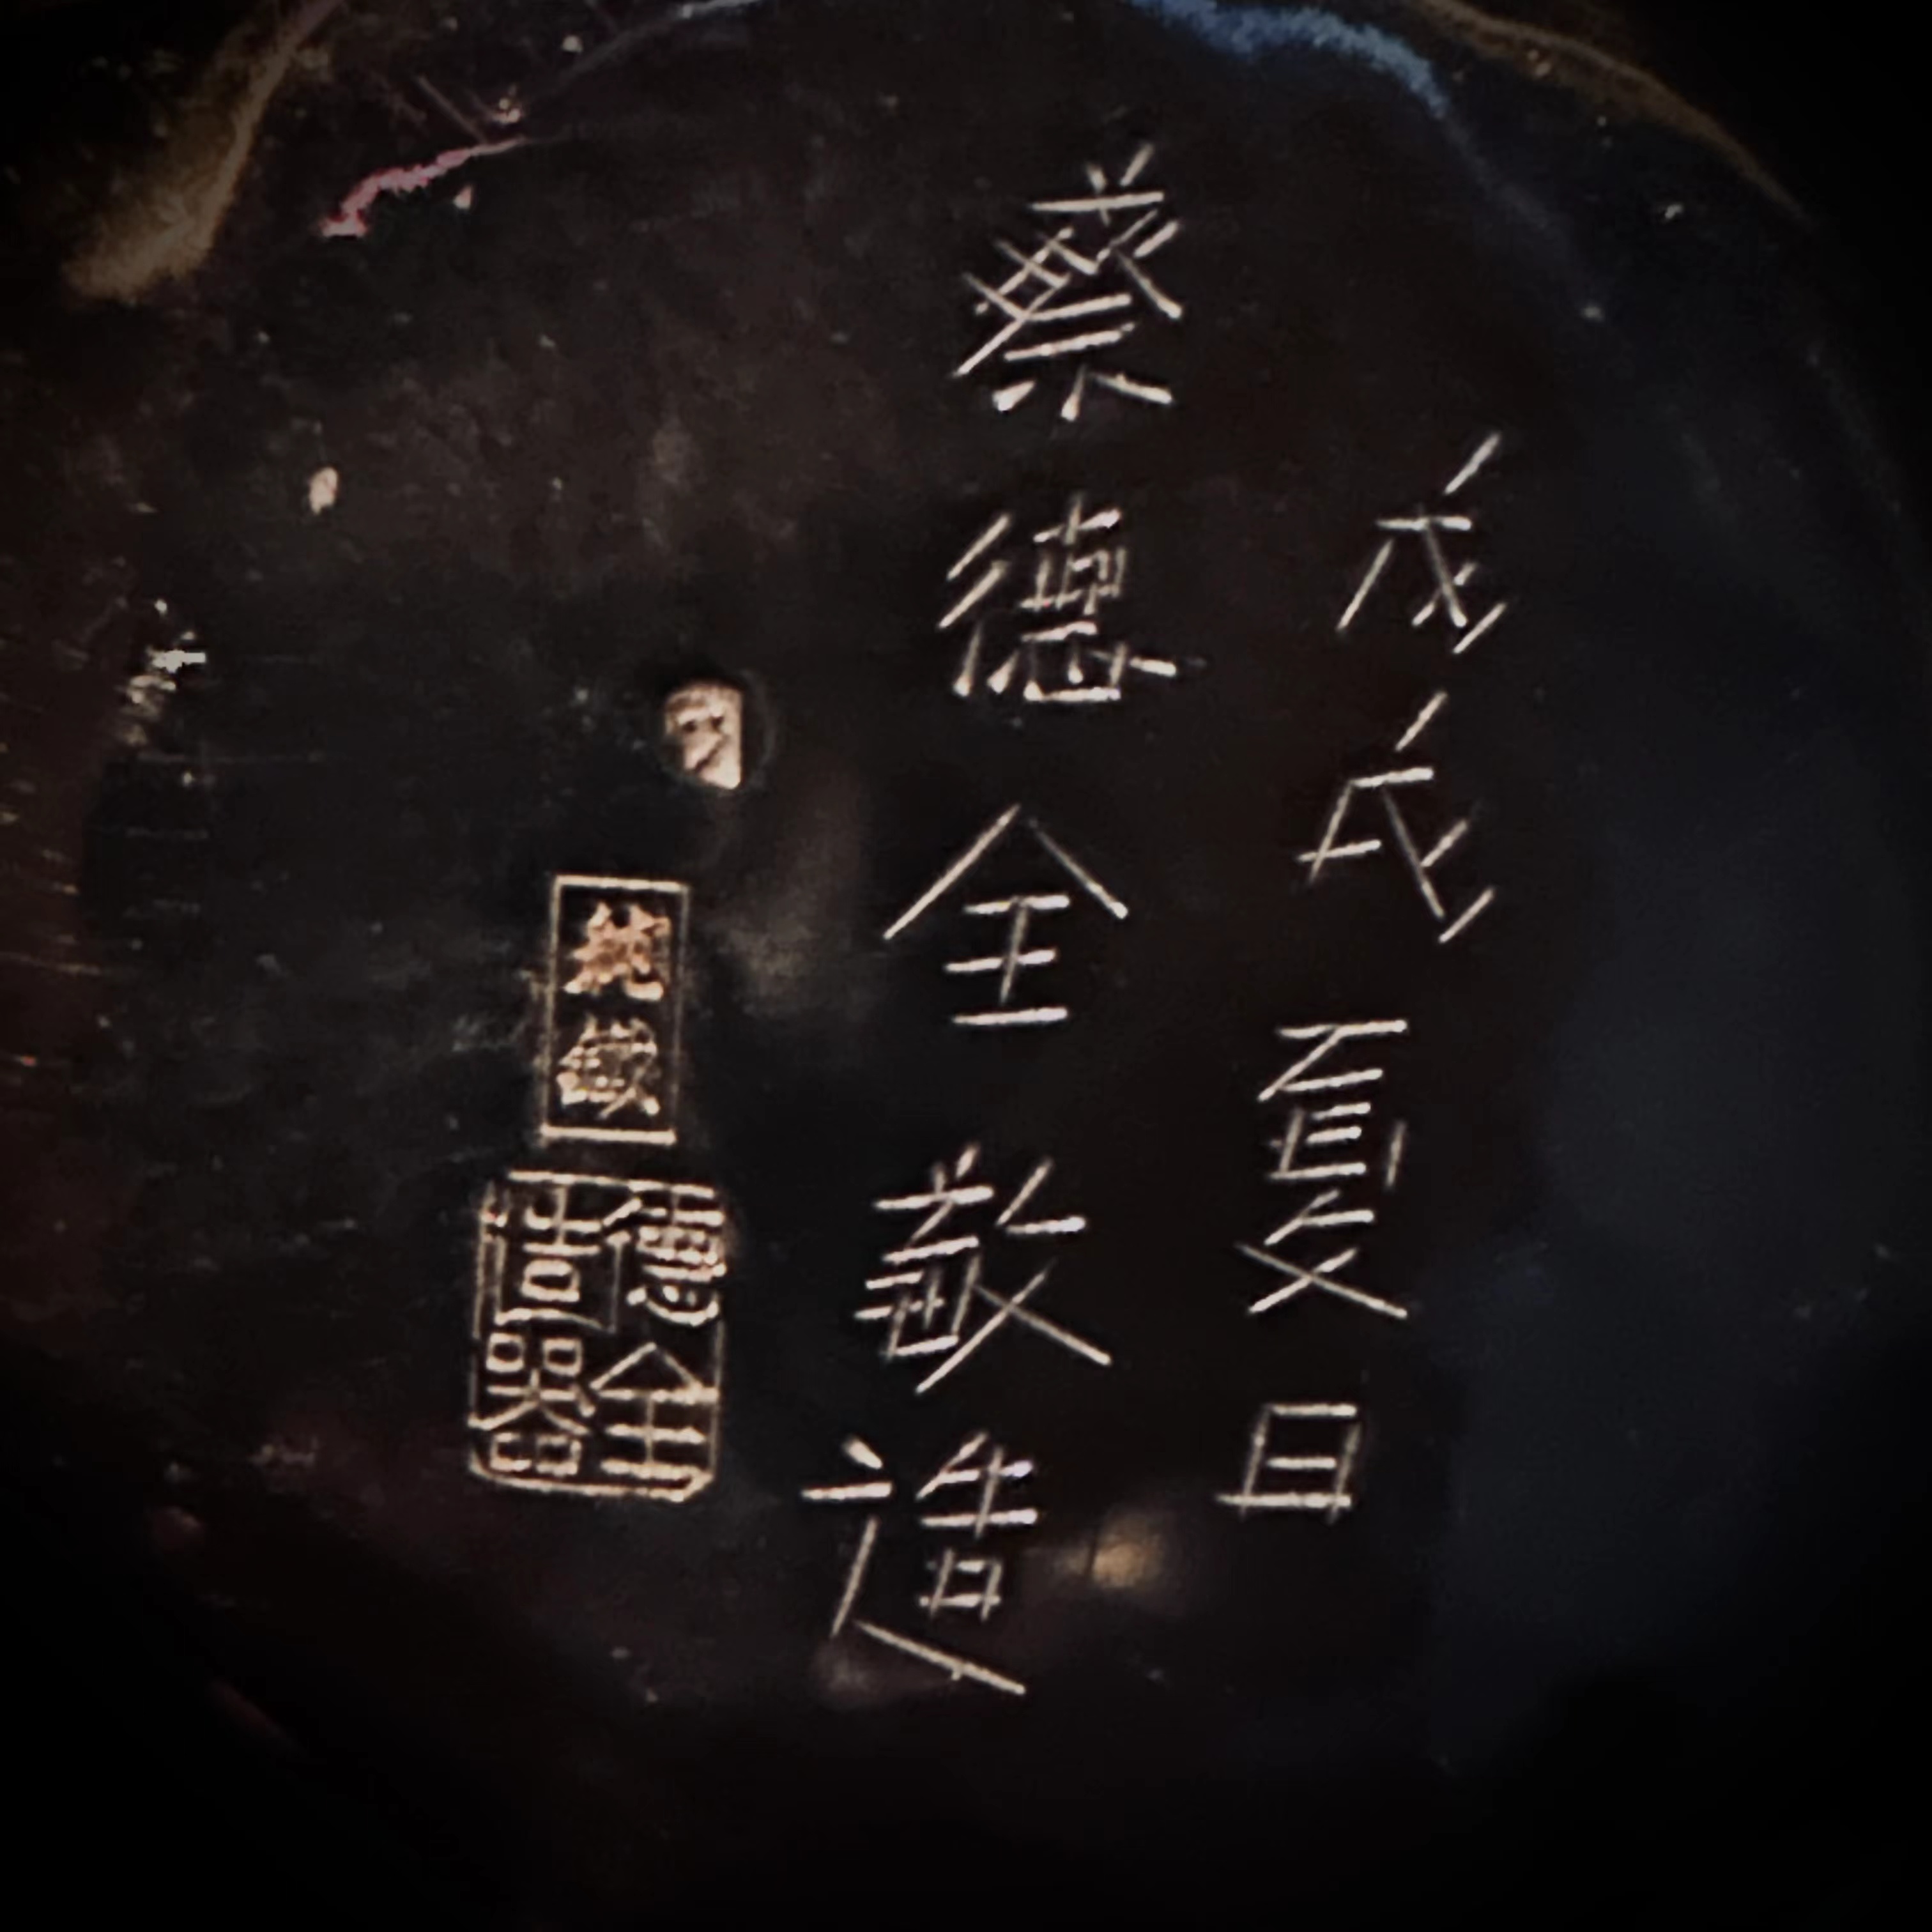 戊戌夏日
蔡德全敬造
純銀
德全
造器